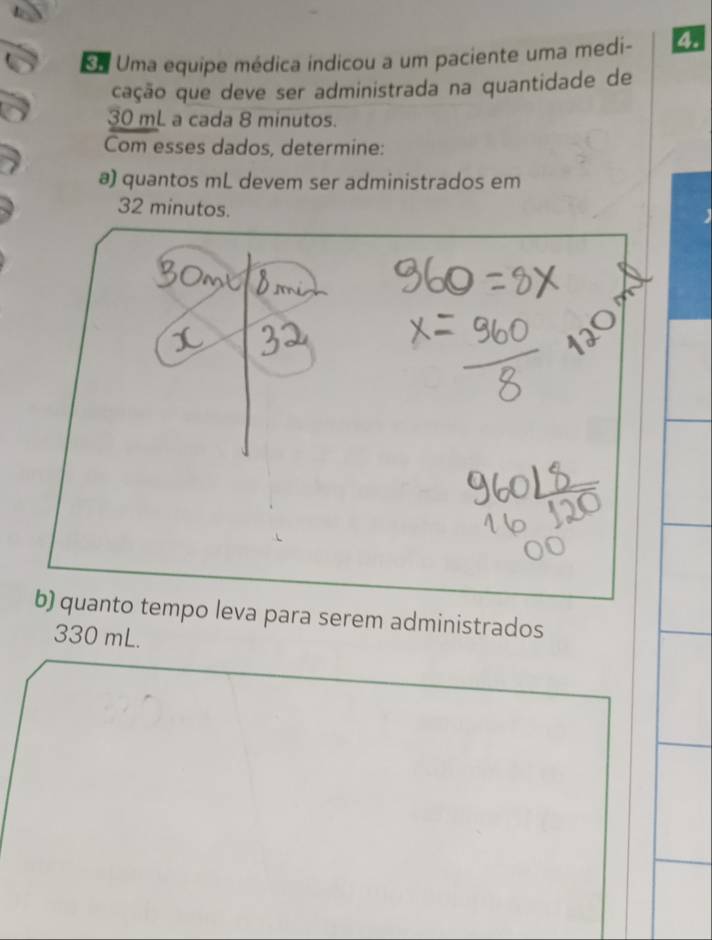 3. Uma equipe médica indicou a um paciente uma medi-
cação que deve ser administrada na quantidade de
30 mL a cada 8 minutos.
Com esses dados, determine:
a) quantos mL devem ser administrados em
32 minutos.
30ml 8 min
x 32
960 = 8x
x = 960
8
120 ml
960 8
16 120
00
b) quanto tempo leva para serem administrados
330 mL.
4.